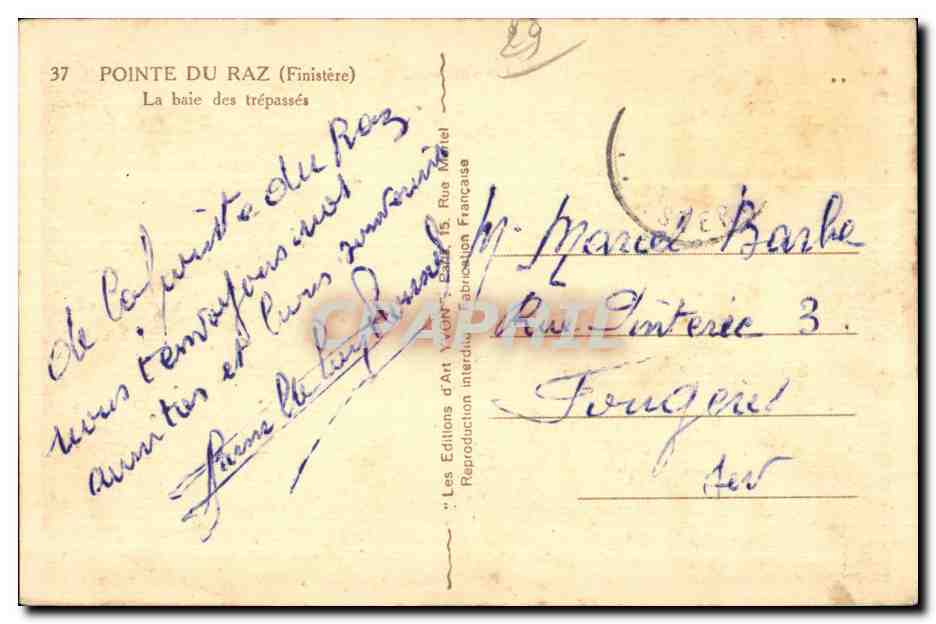 29
37 POINTE DU RAZ (Finistère)
La baie des trépassés
de la pointe du Raz
nous t'envoyons nos
amitiés et bons souvenirs
"Les Editions d'Art YVON", Paris, 15, Rue Martel
Reproduction interdite Fabrication Française
CPAPHIL
M. Marcel Barbe
Rue Pinterie 3.
Fougères